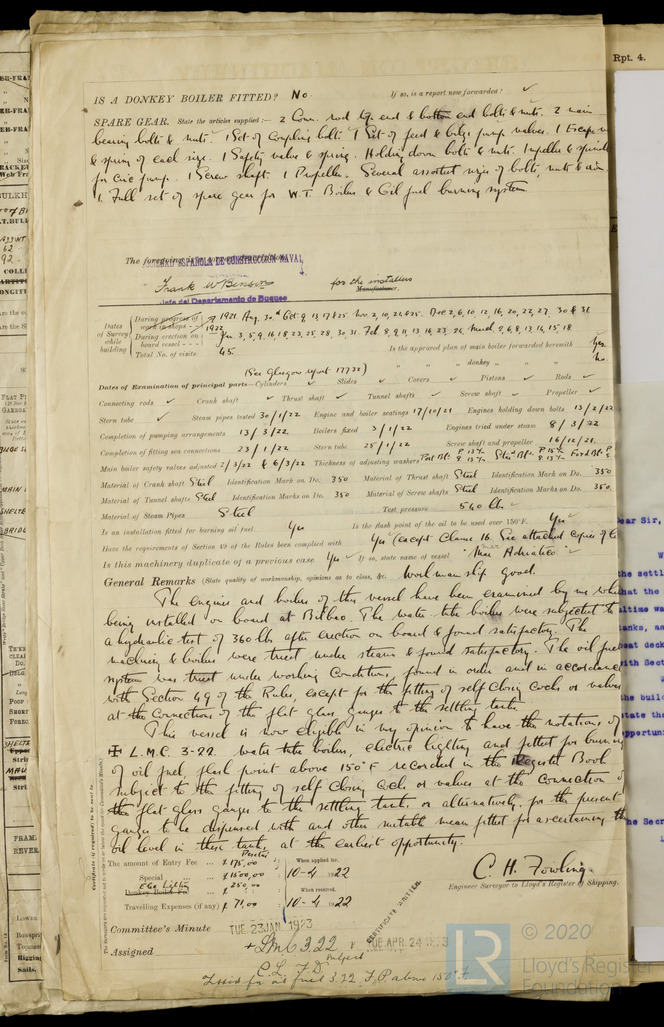 Rpt. 4.
IS A DONKEY BOILER FITTED? No If so, is a report now forwarded? ✓
SPARE GEAR. State the articles supplied:— 2 Conn. rod top end & bottom end bolts & nuts. 2 main
bearing bolts & nuts. 1 Set of Coupling bolts 1 Set of feed & bilge pump valves. 1 Escape
& spring of each size. 1 Safety valve & spring. Holding down bolts & nuts. Impeller & spindle
for Circ pump. 1 Screw shaft. 1 Propeller. Several assorted sizes of bolts, nuts &
1 Full set of spare gear for W.T. Boiler & Oil fuel burning system
The foregoing is a
SOCIEDAD ESPAÑOLA DE CONSTRUCCIÓN NAVAL
for the installers
Manufacturer.
Jefe del Departamento de Buques
Dates of Survey while building
During progress of work in shops - 1921 Aug. 30 Oct. 9, 13, 17 & 25 Nov. 2, 10, 21 & 25. Dec 2, 6, 10, 16, 20, 22, 27, 30 & 31
During erection on board vessel - 1922 Jan 3, 5, 9, 16, 18, 23, 25, 28, 30, 31. Feb 8, 9, 11, 13, 16, 23, 26, March 2, 6, 8, 13, 14, 15, 18.
Total No. of visits 45. Is the approved plan of main boiler forwarded herewith Yes
" " " donkey " " " No
(See Glasgow report 17732)
Dates of Examination of principal parts—Cylinders ✓ Slides ✓ Covers ✓ Pistons ✓ Rods ✓
Connecting rods ✓ Crank shaft ✓ Thrust shaft ✓ Tunnel shafts ✓ Screw shaft ✓ Propeller ✓
Stern tube ✓ Steam pipes tested 30/1/22 Engine and boiler seatings 17/10/21 Engines holding down bolts 13/2/22
Completion of pumping arrangements 13/3/22 Boilers fixed 3/1/22 Engines tried under steam 8/3/22
Completion of fitting sea connections 23/1/22 Stern tube 25/1/22 Screw shaft and propeller 16/12/21
Main boiler safety valves adjusted 2/3/22 & 6/3/22 Thickness of adjusting washers
Material of Crank shaft Steel Identification Mark on Do. 350 Material of Thrust shaft Steel Identification Mark on Do. 350
Material of Tunnel shafts Steel Identification Marks on Do. 350 Material of Screw shafts Steel Identification Marks on Do. 350.
Material of Steam Pipes Steel Test pressure 540 lbs ✓
Is an installation fitted for burning oil fuel Yes Is the flash point of the oil to be used over 150°F. Yes ✓
Have the requirements of Section 49 of the Rules been complied with Yes (except Clause 16. See attached copies of
Is this machinery duplicate of a previous case Yes ✓ If so, state name of vessel "Mar Adriatico" ✓
General Remarks (State quality of workmanship, opinions as to class, &c. Workmanship good.
The engines and boilers of this vessel have been examined by me
being installed on board at Bilbao. The water tube boilers were subjected to
a hydraulic test of 360 lbs after erection on board & found satisfactory. The
machinery & boilers were tried under steam & found satisfactory. The oil fuel
system was tried under working Conditions, found in order and in accordance
with Section 49 of the Rules, except for the fitting of self closing Cocks or valves
at the Connections of the flat glass gauges to the settling tanks.
This vessel is now eligible in my opinion to have the notations of
✠ L.M.C. 3-22. water tube boilers, electric lighting and fitted for burning
of oil fuel, flash point above 150°F recorded in the Register Book
subject to the fitting of self closing Cocks or valves at the connection
the flat glass gauges to the settling tanks or alternatively, for the present
gauges to be dispensed with and other suitable means fitted for ascertaining the
oil level in these tanks, at the earliest opportunity.
The amount of Entry Fee ... 175.00 When applied for,
Special ... 1500.00 10-4-1922
Elec Lighting ... 250.00 When received,
Travelling Expenses (if any) 71.00 10-4-1922
C. H. Fowling.
Engineer Surveyor to Lloyd's Register of Shipping.
Committee's Minute TUE 23 JAN 1923
CERTIFICATE WRITTEN
Assigned + LMC 3.22 TUE. APR. 24 1923
subject
C.L. F.D.
Fitted for oil fuel 3.22 F.P. above 150°F
© 2020
Lloyd's Register
Foundation
LR